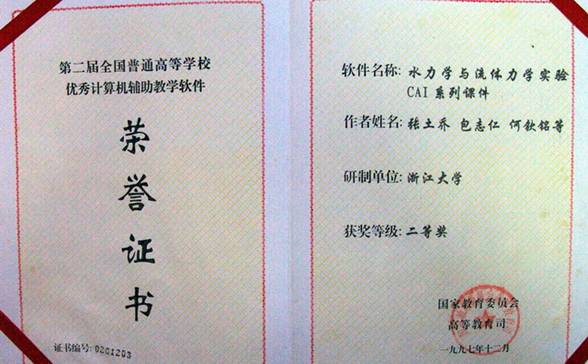 第二届全国普通高等学校
优秀计算机辅助教学软件
荣誉证书
证书编号:0201203
软件名称: 水力学与流体力学实验
CAI 系列课件
作者姓名: 张土乔 包志仁 何钦铭等
研制单位: 浙江大学
获奖等级: 二等奖
国家教育委员会
高等教育司
一九九七年十二月